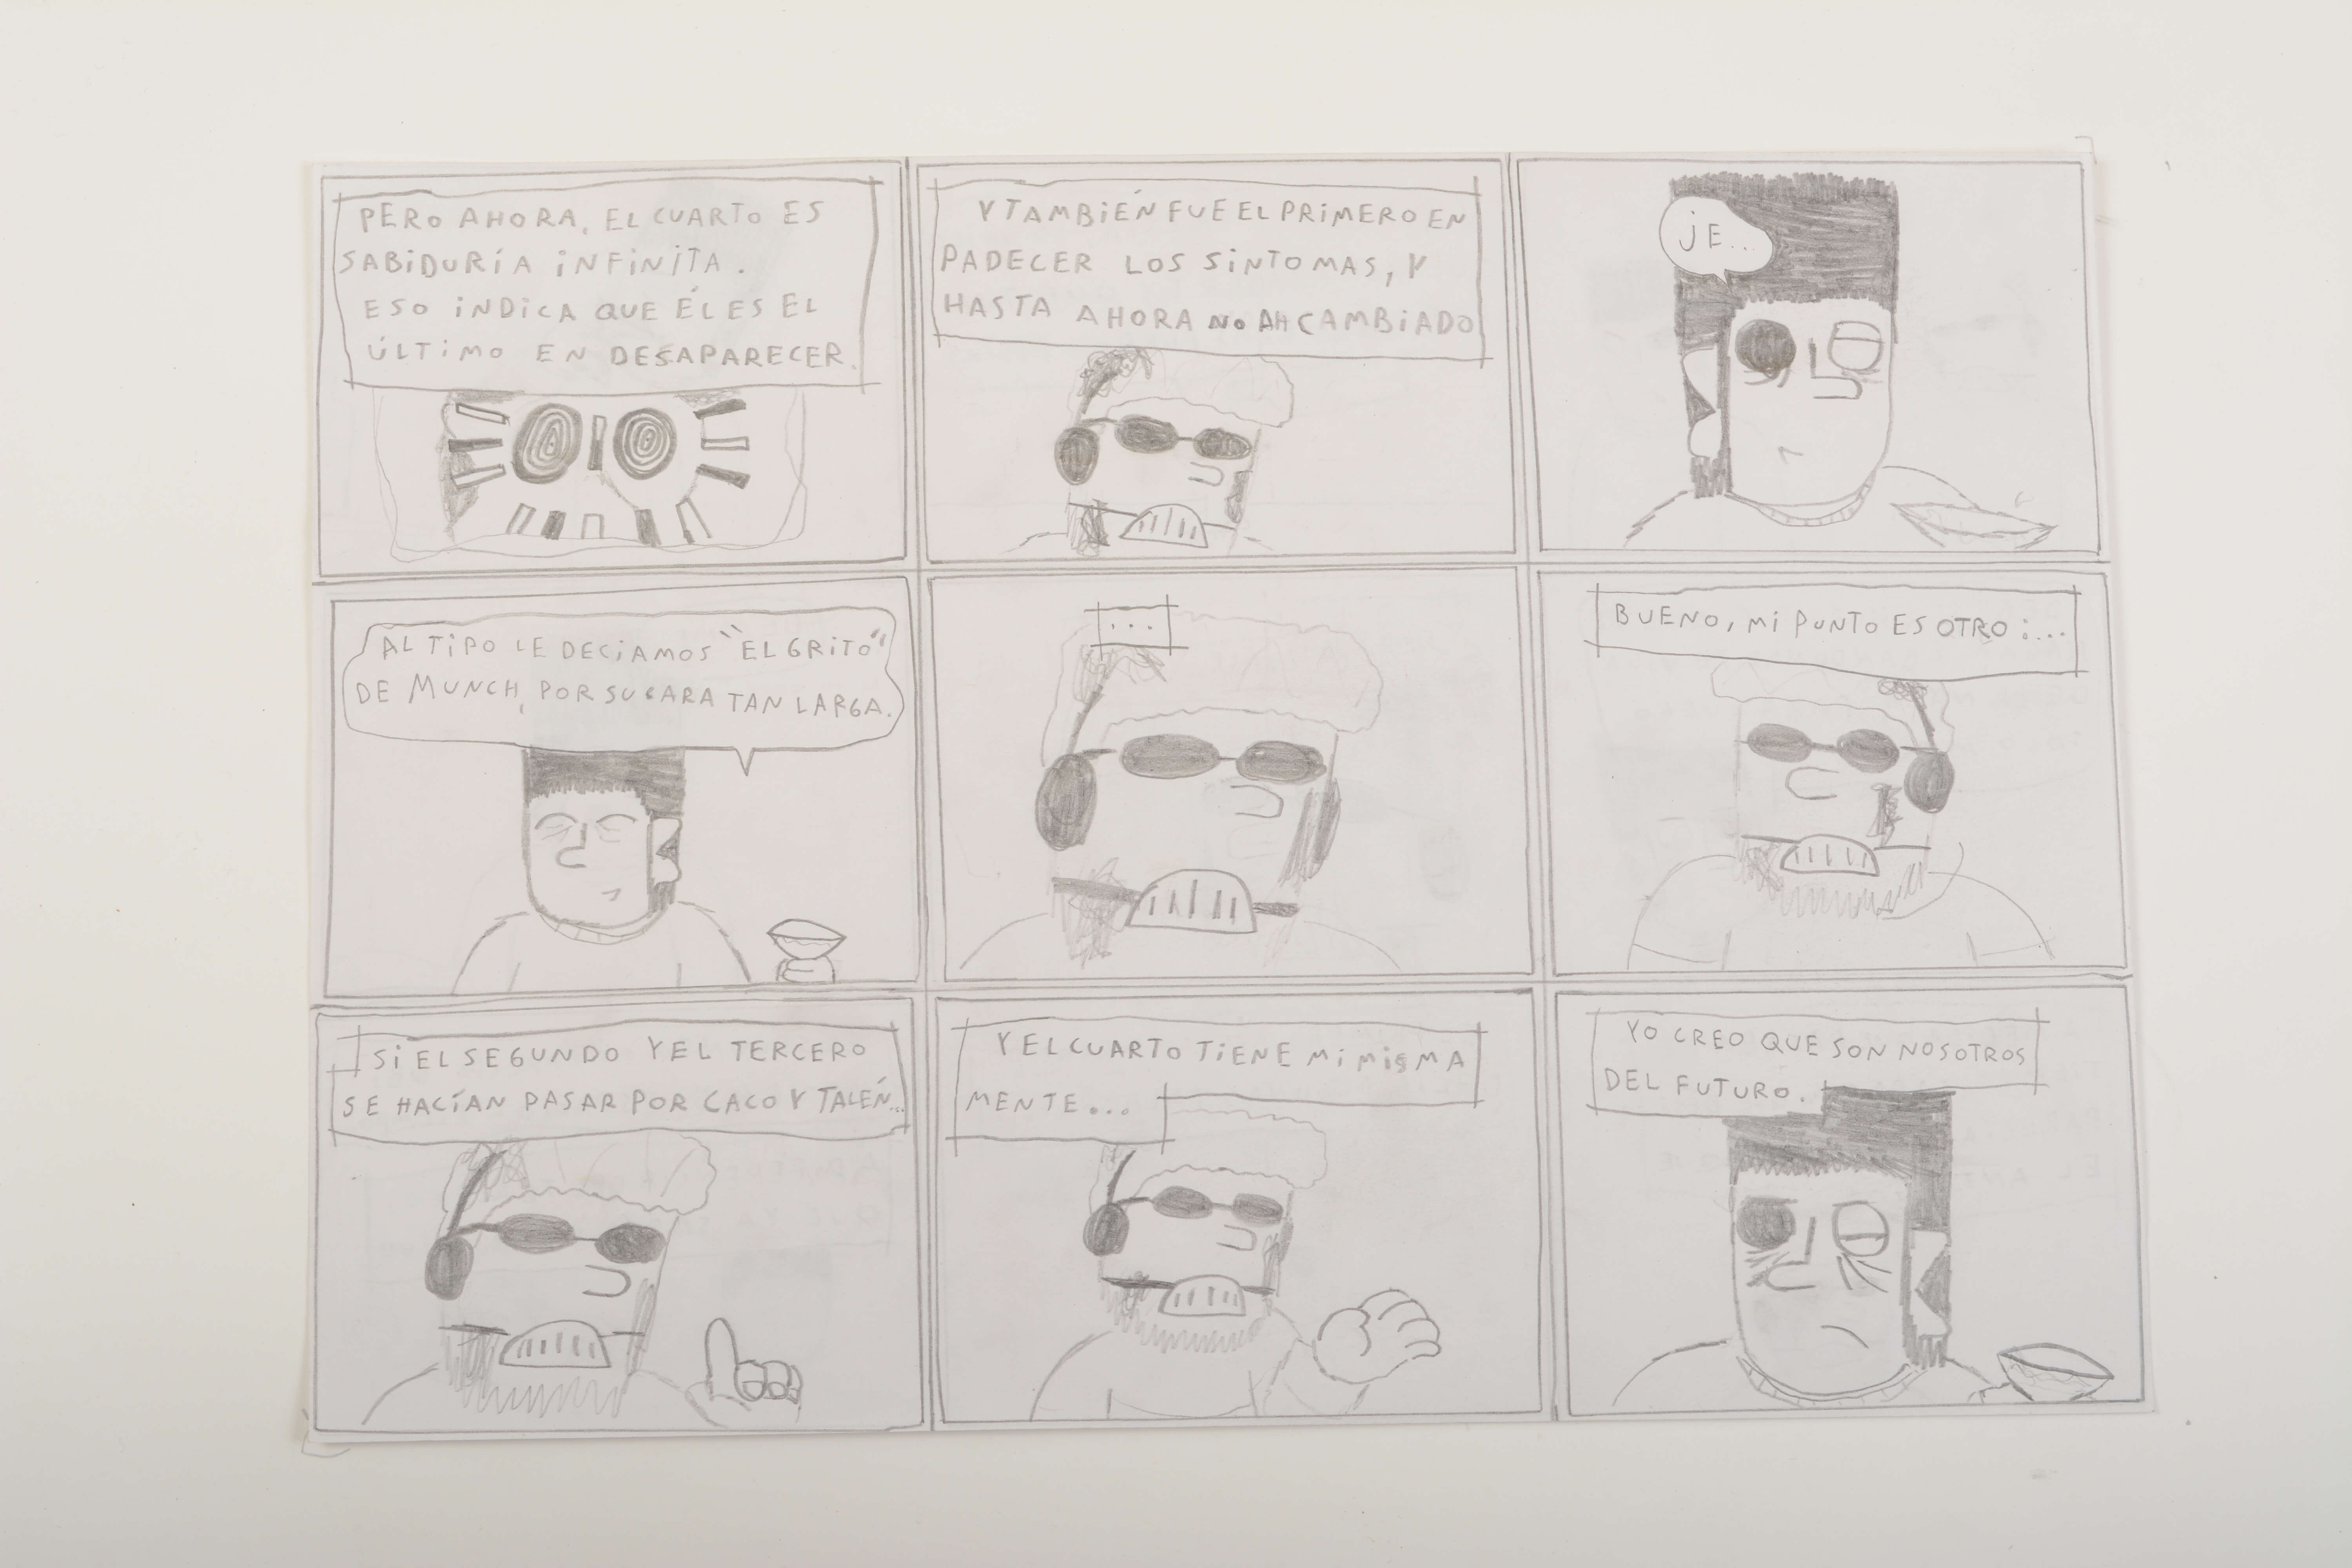 PERO AHORA, EL CUARTO ES
SABIDURÍA INFINITA.
ESO INDICA QUE ÉL ES EL
ÚLTIMO EN DESAPARECER.
Y TAMBIÉN FUE EL PRIMERO EN
PADECER LOS SINTOMAS, Y
HASTA AHORA NO AH CAMBIADO
JE...
AL TIPO LE DECIAMOS "EL GRITO"
DE MUNCH, POR SU CARA TAN LARGA.
...
BUENO, MI PUNTO ES OTRO:...
SI EL SEGUNDO Y EL TERCERO
SE HACÍAN PASAR POR CACO Y TALÉN...
Y EL CUARTO TIENE MI MISMA
MENTE...
YO CREO QUE SON NOSOTROS
DEL FUTURO.